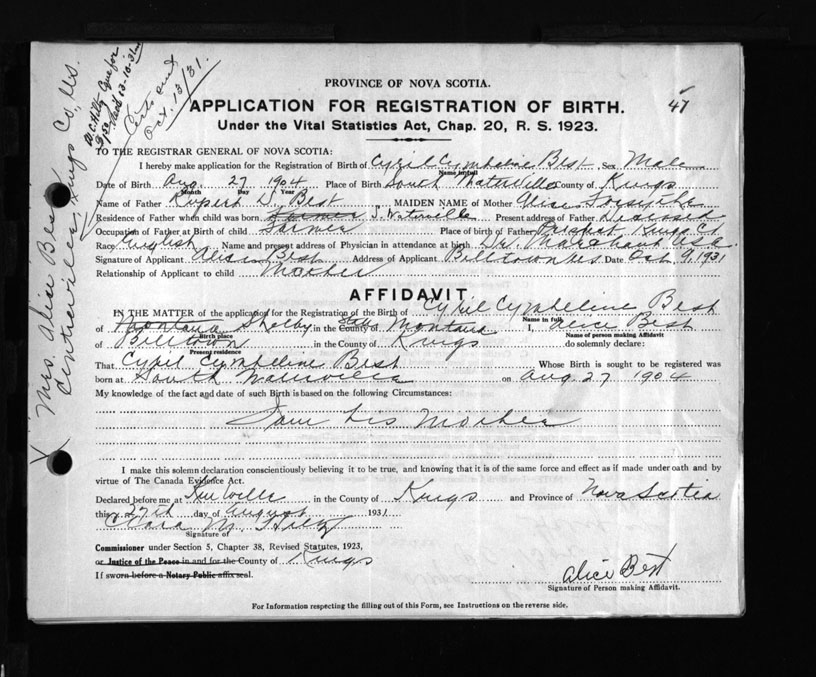 Mrs. Alice Best
Centreville, Kings Co., N.S.
Oct. 13/31.
PROVINCE OF NOVA SCOTIA.
APPLICATION FOR REGISTRATION OF BIRTH. 47
Under the Vital Statistics Act, Chap. 20, R. S. 1923.
TO THE REGISTRAR GENERAL OF NOVA SCOTIA:
I hereby make application for the Registration of Birth of Cyril Cymbeline Best Sex Male
Name in full
Date of Birth Aug. 27 1904 Place of Birth South Waterville County of Kings
Month Day Year
Name of Father Rupert D. Best MAIDEN NAME of Mother Alice Forsythe
Residence of Father when child was born Farmer S. Waterville Present address of Father Deceased
Occupation of Father at Birth of child Farmer Place of birth of Father Prospect Kings Co
Race English Name and present address of Physician in attendance at birth Dr. USA
Signature of Applicant Alice Best Address of Applicant Billtown NS. Date Oct 9, 1931
Relationship of Applicant to child Mother
AFFIDAVIT
IN THE MATTER of the application for the Registration of the Birth of Cyril Cymbeline Best
Name in full
of Montana Shelby in the State County of Montana I, Alice Best
Birth place Name of person making Affidavit
of Billtown in the County of Kings do solemnly declare:
Present residence
That Cyril Cymbeline Best Whose Birth is sought to be registered was
born at South Waterville on Aug 27 1904
My knowledge of the fact and date of such Birth is based on the following Circumstances:
I am his Mother
I make this solemn declaration conscientiously believing it to be true, and knowing that it is of the same force and effect as if made under oath and by
virtue of The Canada Evidence Act.
Declared before me at Kentville in the County of Kings and Province of Nova Scotia
this 27th day of August 1931
Clara M. Hiltz
Signature of
Commissioner under Section 5, Chapter 38, Revised Statutes, 1923,
or Justice of the Peace in and for the County of Kings
If sworn before a Notary Public affix seal.
Alice Best
Signature of Person making Affidavit.
For Information respecting the filling out of this Form, see Instructions on the reverse side.